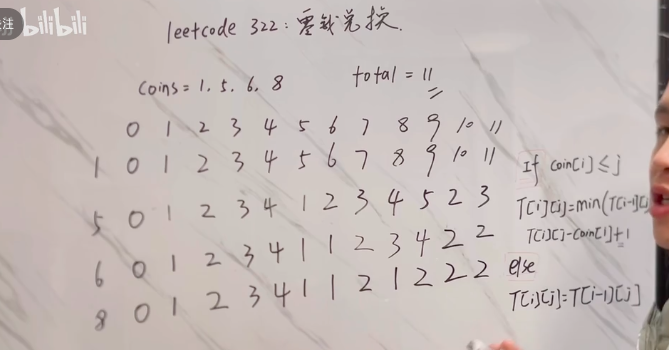 注
bilibili
leetcode 322:零钱兑换.
coins = 1, 5, 6, 8
total = 11
0 1 2 3 4 5 6 7 8 9 10 11
1 0 1 2 3 4 5 6 7 8 9 10 11
5 0 1 2 3 4 1 2 3 4 5 2 3
6 0 1 2 3 4 1 1 2 3 4 2 2
8 0 1 2 3 4 1 1 2 1 2 2 2
If coin[i] ≤ j
T[i][j]=min(T[i-1][j
T[i][j-coin[i]+1
else
T[i][j]=T[i-1][j]